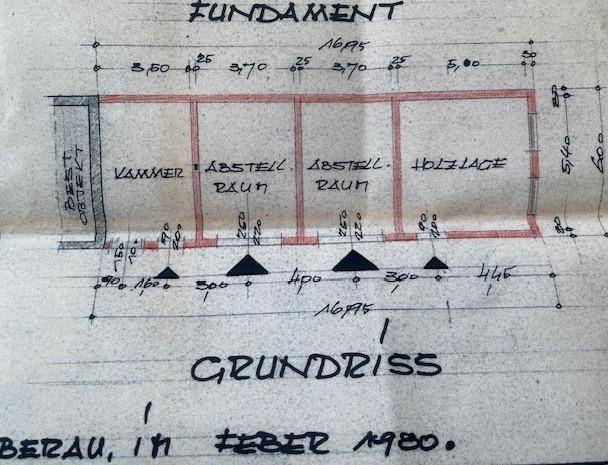 FUNDAMENT
16,95
3,50 25 3,70 25 3,70 25 5,00 30
BEST. OBJEKT
KAMMER
ABSTELL.
RAUM
ABSTELL.
RAUM
HOLZLAGE
30
5,40
6,00
30
90
200
260
220
260
220
90
200
90 160 300 400 300 445
16,95
GRUNDRISS
BERAU, IM FEBER 1980.